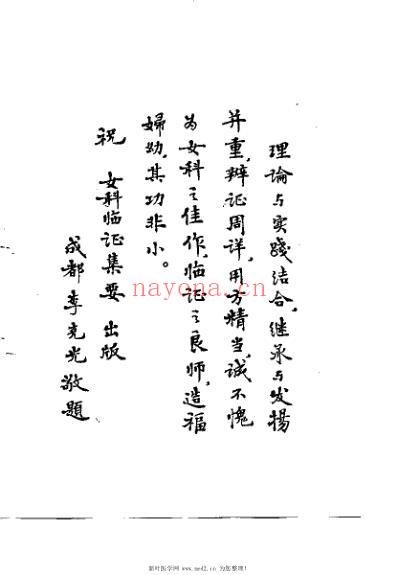 理論与实践结合,继承与发揚
并重,辩证周详,用方精当,诚不愧
为女科之佳作,临证之良师,造福
婦幼,其功非小。
祝 女科临证集要 出版
成都李克光敬題
nayona.cn
新叶医学网 www.med2.cn 为您整理!